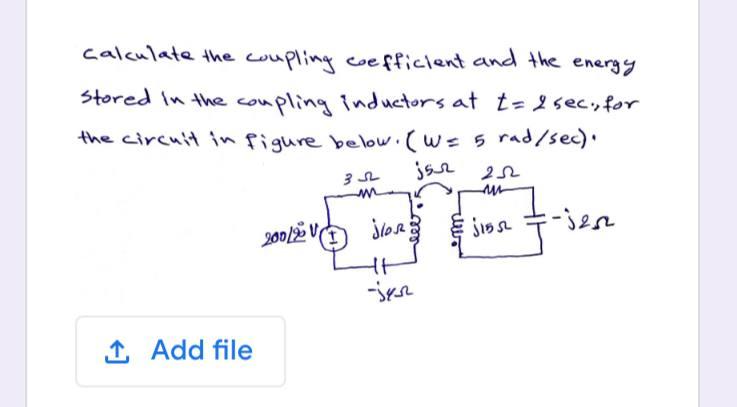 calculate the coupling coefficient and the energy
stored in the coupling inductors at t= 2 sec., for
the circuit in figure below. (W= 5 rad/sec).
3Ω j5Ω 2Ω
j10Ω j15Ω -j2Ω
-j4Ω
Add file